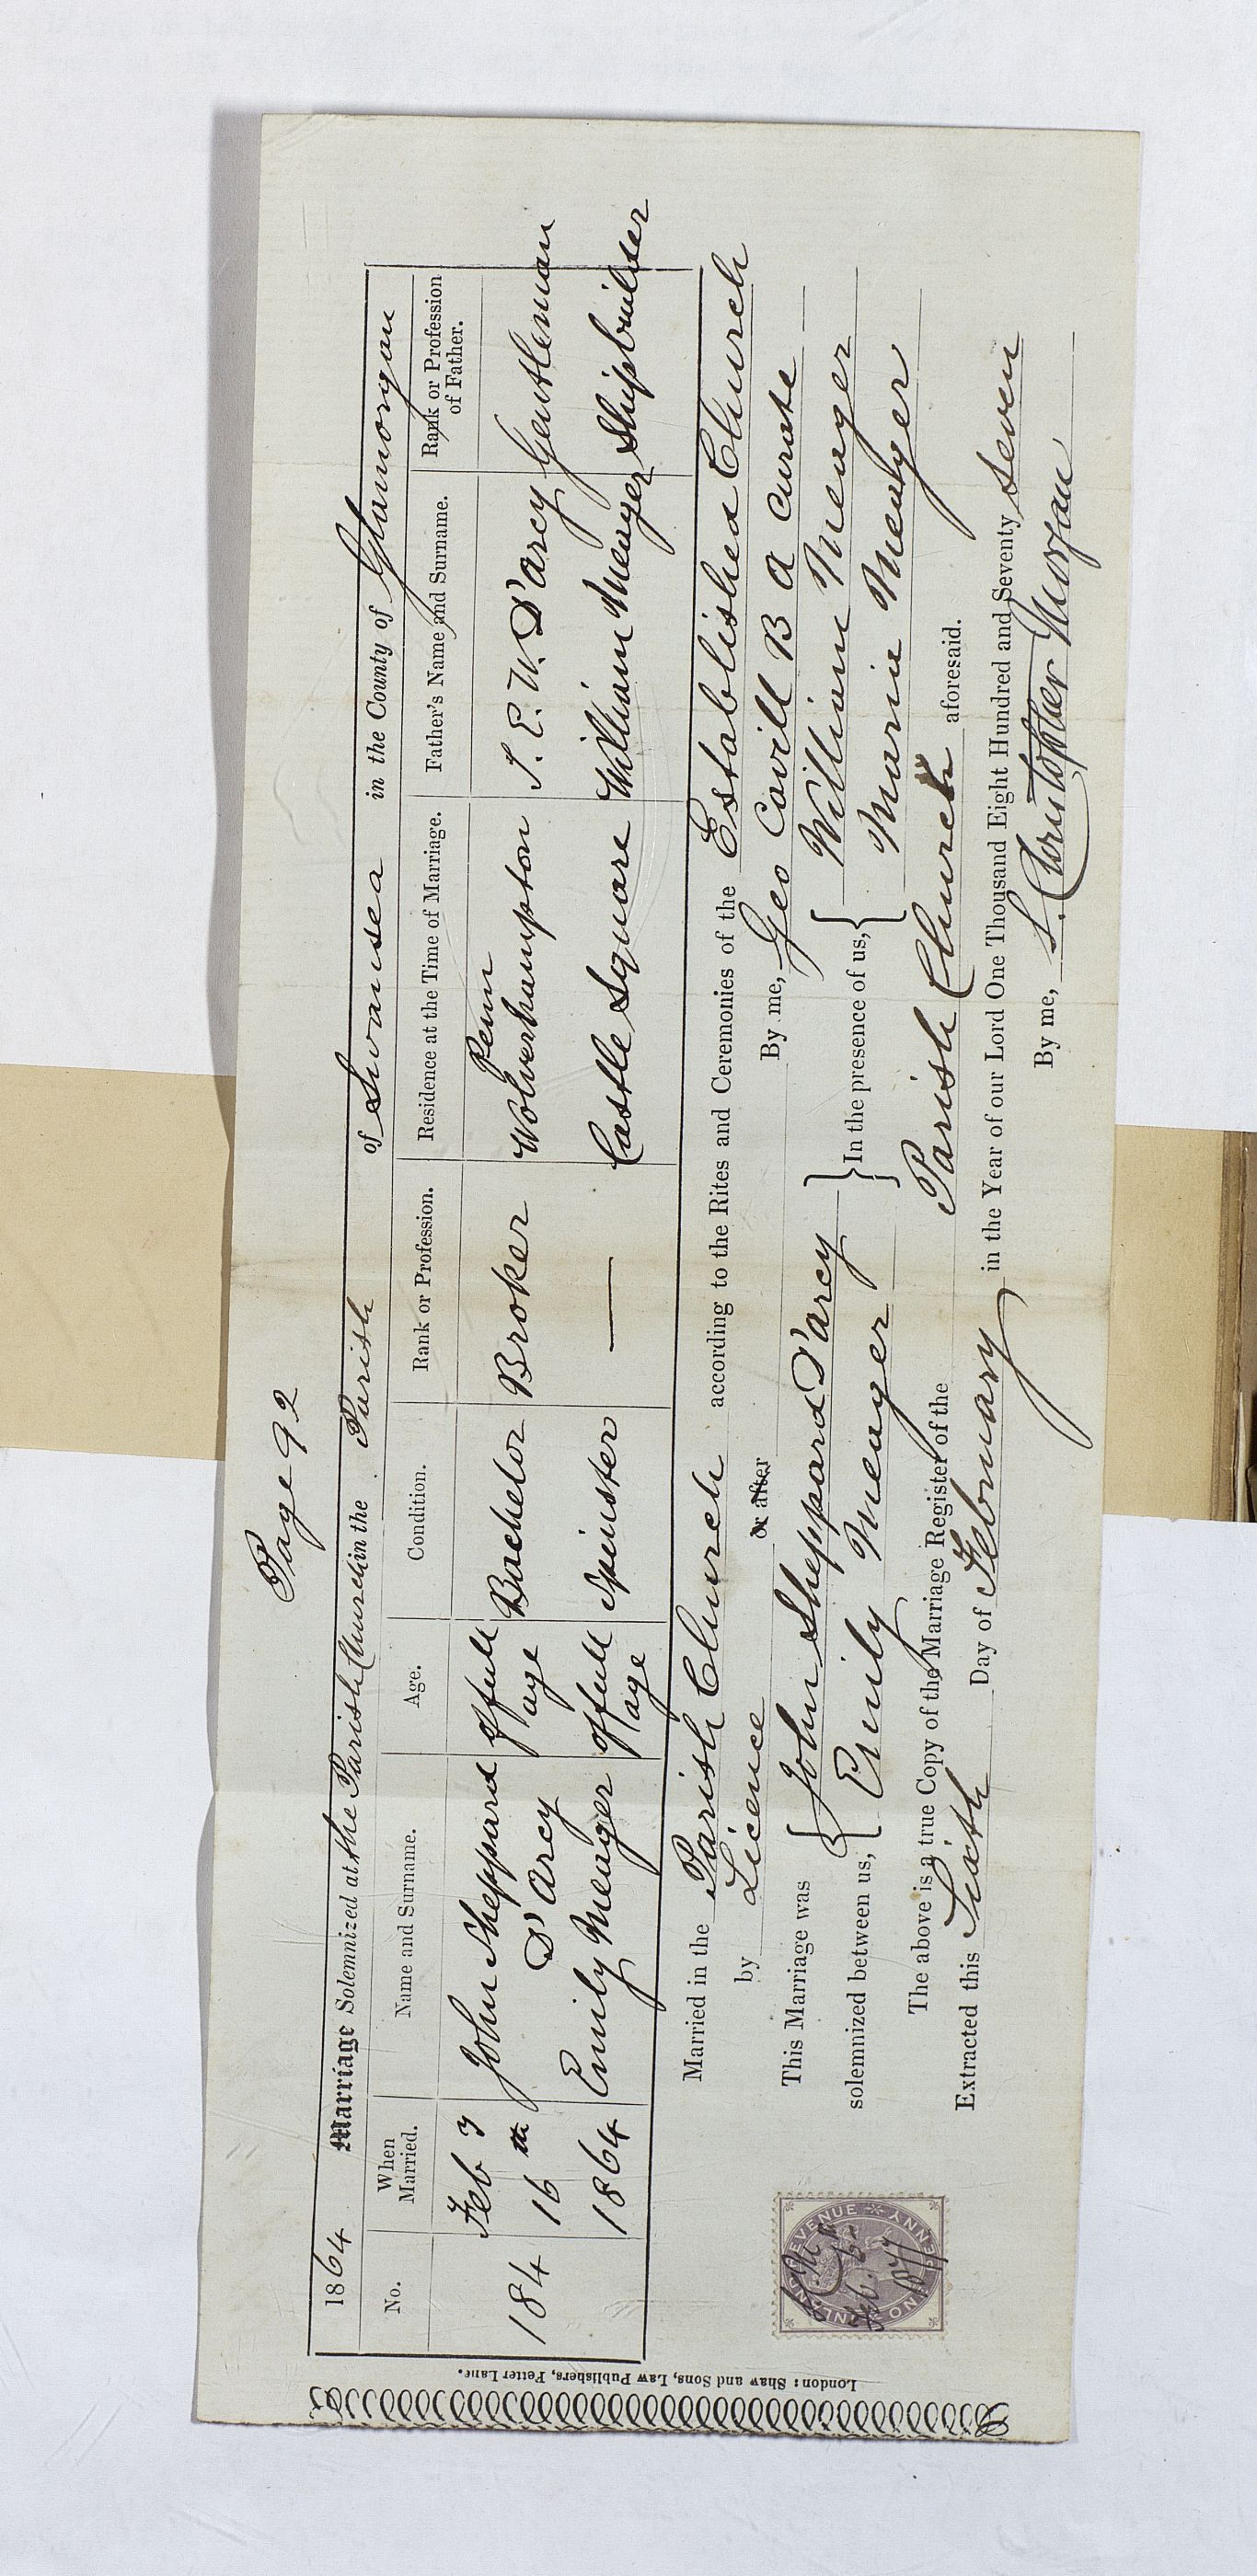 Page 92
1864 Marriage Solemnized at the Parish Church in the Parish of Swansea in the County of Glamorgan
No. When Married. Name and Surname. Age. Condition. Rank or Profession. Residence at the Time of Marriage. Father's Name and Surname. Rank or Profession of Father.
184 Feb y 16th 1864 John Sheppard D'Arcy of full age Bachelor Broker Penn Wolverhampton S. E. W. D'Arcy Gentleman
Emily Meager of full age Spinster — Castle Square William Meager Shipbuilder
Married in the Parish Church according to the Rites and Ceremonies of the Established Church
by Licence or after By me, Geo Cavill B A Curate
This Marriage was solemnized between us, { John Sheppard D'Arcy } In the presence of us, { William Meager
Emily Meager Maria Meager
The above is a true Copy of the Marriage Register of the Parish Church aforesaid.
Extracted this Sixth Day of February in the Year of our Lord One Thousand Eight Hundred and Seventy Seven
By me, S. Christopher Morgan
INLAND REVENUE ONE PENNY
Feb. 6th
1877
London: Shaw and Sons, Law Publishers, Fetter Lane.